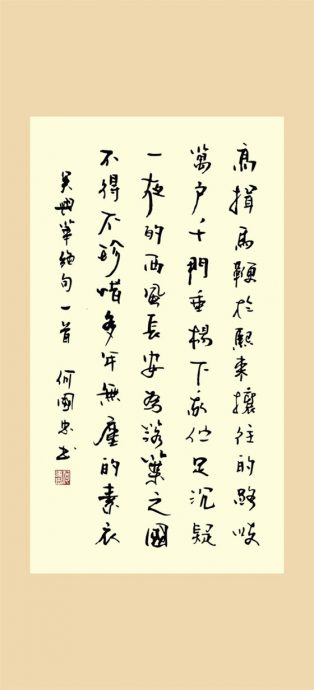 高揖馬鞭於熙來攘往的路岐
萬戶千門垂楊下足沉疑
一夜的西風長安為落葉之國
不得不珍惜多年無塵的素衣
吴興華絕句一首 何國忠书